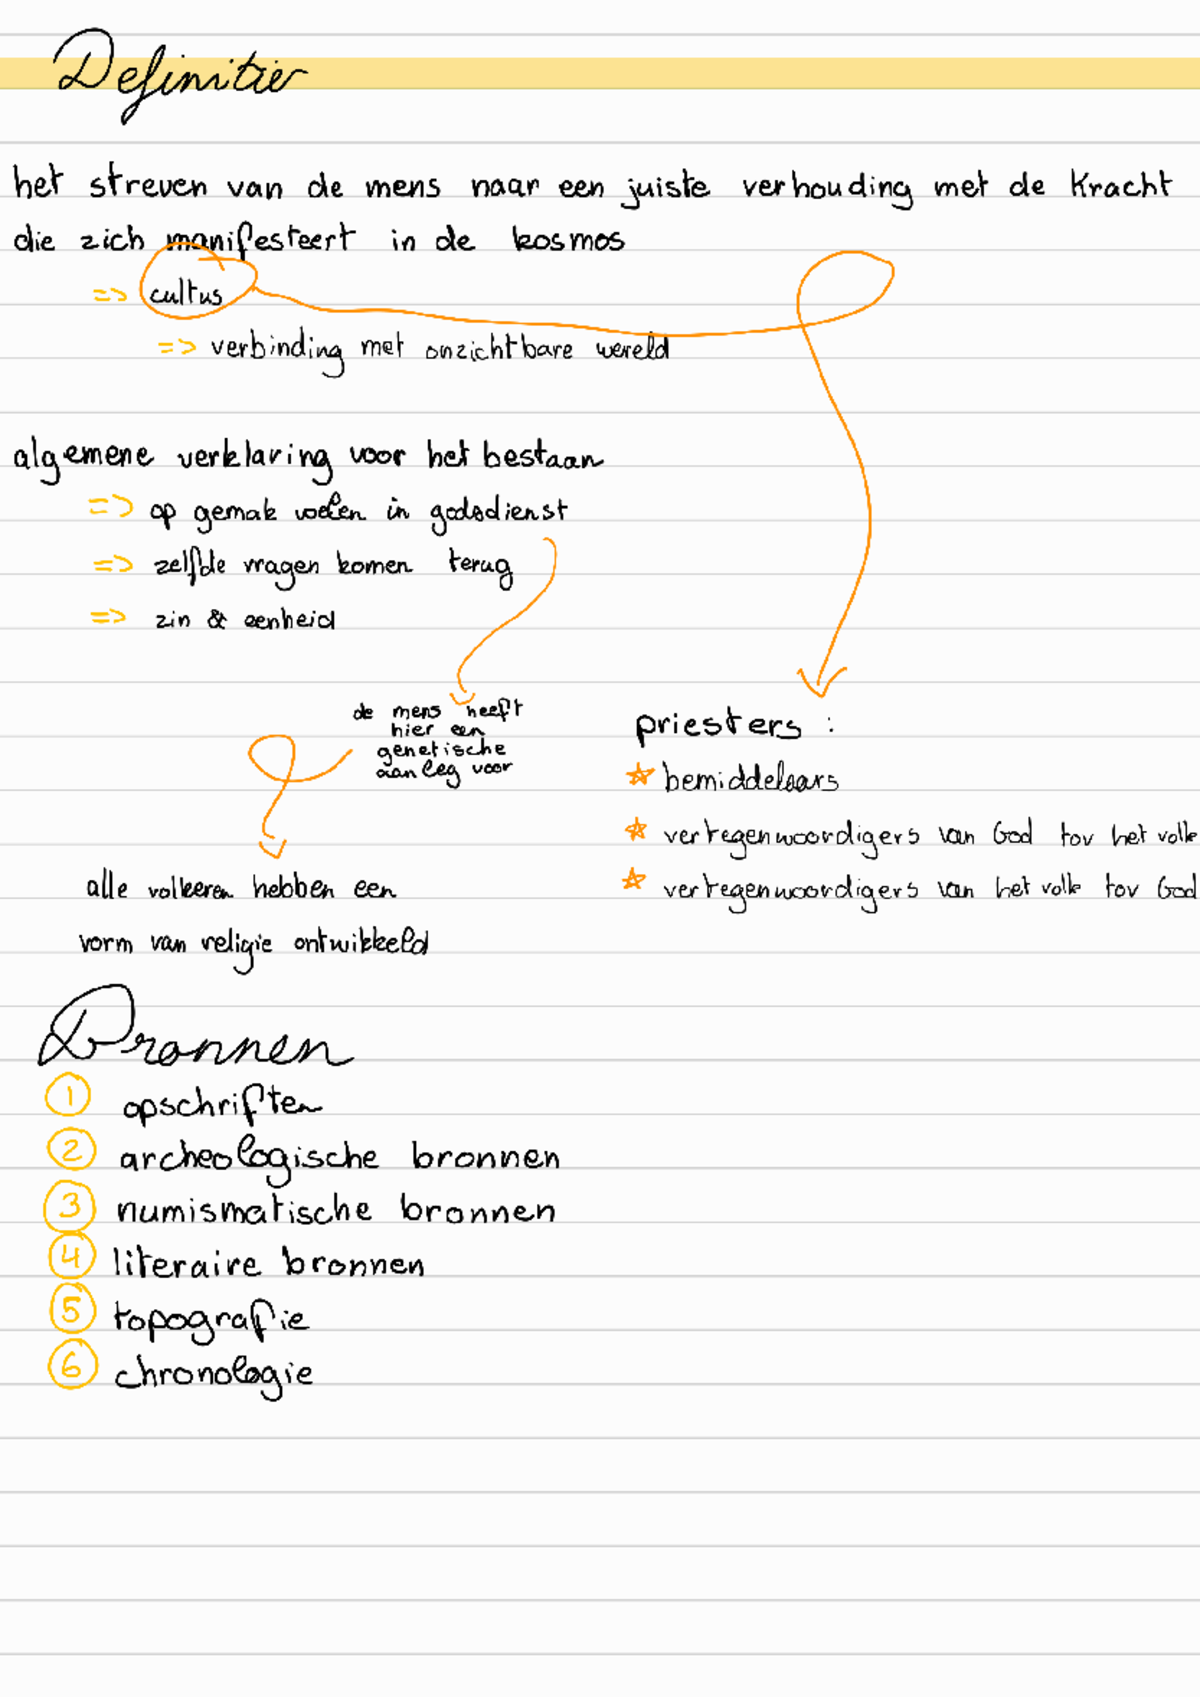 Definitie
het streven van de mens naar een juiste verhouding met de kracht
die zich manifesteert in de kosmos
=> cultus
=> verbinding met onzichtbare wereld
algemene verklaring voor het bestaan
=> op gemak voelen in godsdienst
=> zelfde vragen komen terug
=> zin & eenheid
de mens heeft
hier een
genetische
aanleg voor
alle volkeren hebben een
vorm van religie ontwikkeld
priesters :
☆ bemiddelaars
☆ vertegenwoordigers van God tov het volk
☆ vertegenwoordigers van het volk tov God
Bronnen
1 opschriften
2 archeologische bronnen
3 numismatische bronnen
4 literaire bronnen
5 topografie
6 chronologie